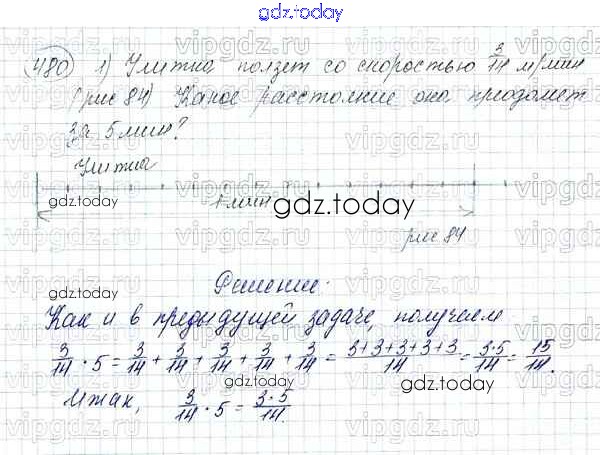 gdz.today
480 1) Улитка ползет со скоростью 3/14 м/мин
(рис 84) Какое расстояние она преодолеет
за 5 мин?
Улитка
gdz.today 1 мин gdz.today
рис 84
Решение.
gdz.today
Как и в предыдущей задаче, получаем
3/14 · 5 = 3/14 + 3/14 + 3/14 + 3/14 + 3/14 = 3+3+3+3+3/14 = 3·5/14 = 15/14.
gdz.today gdz.today
Итак, 3/14 · 5 = 3·5/14.
gdz.today